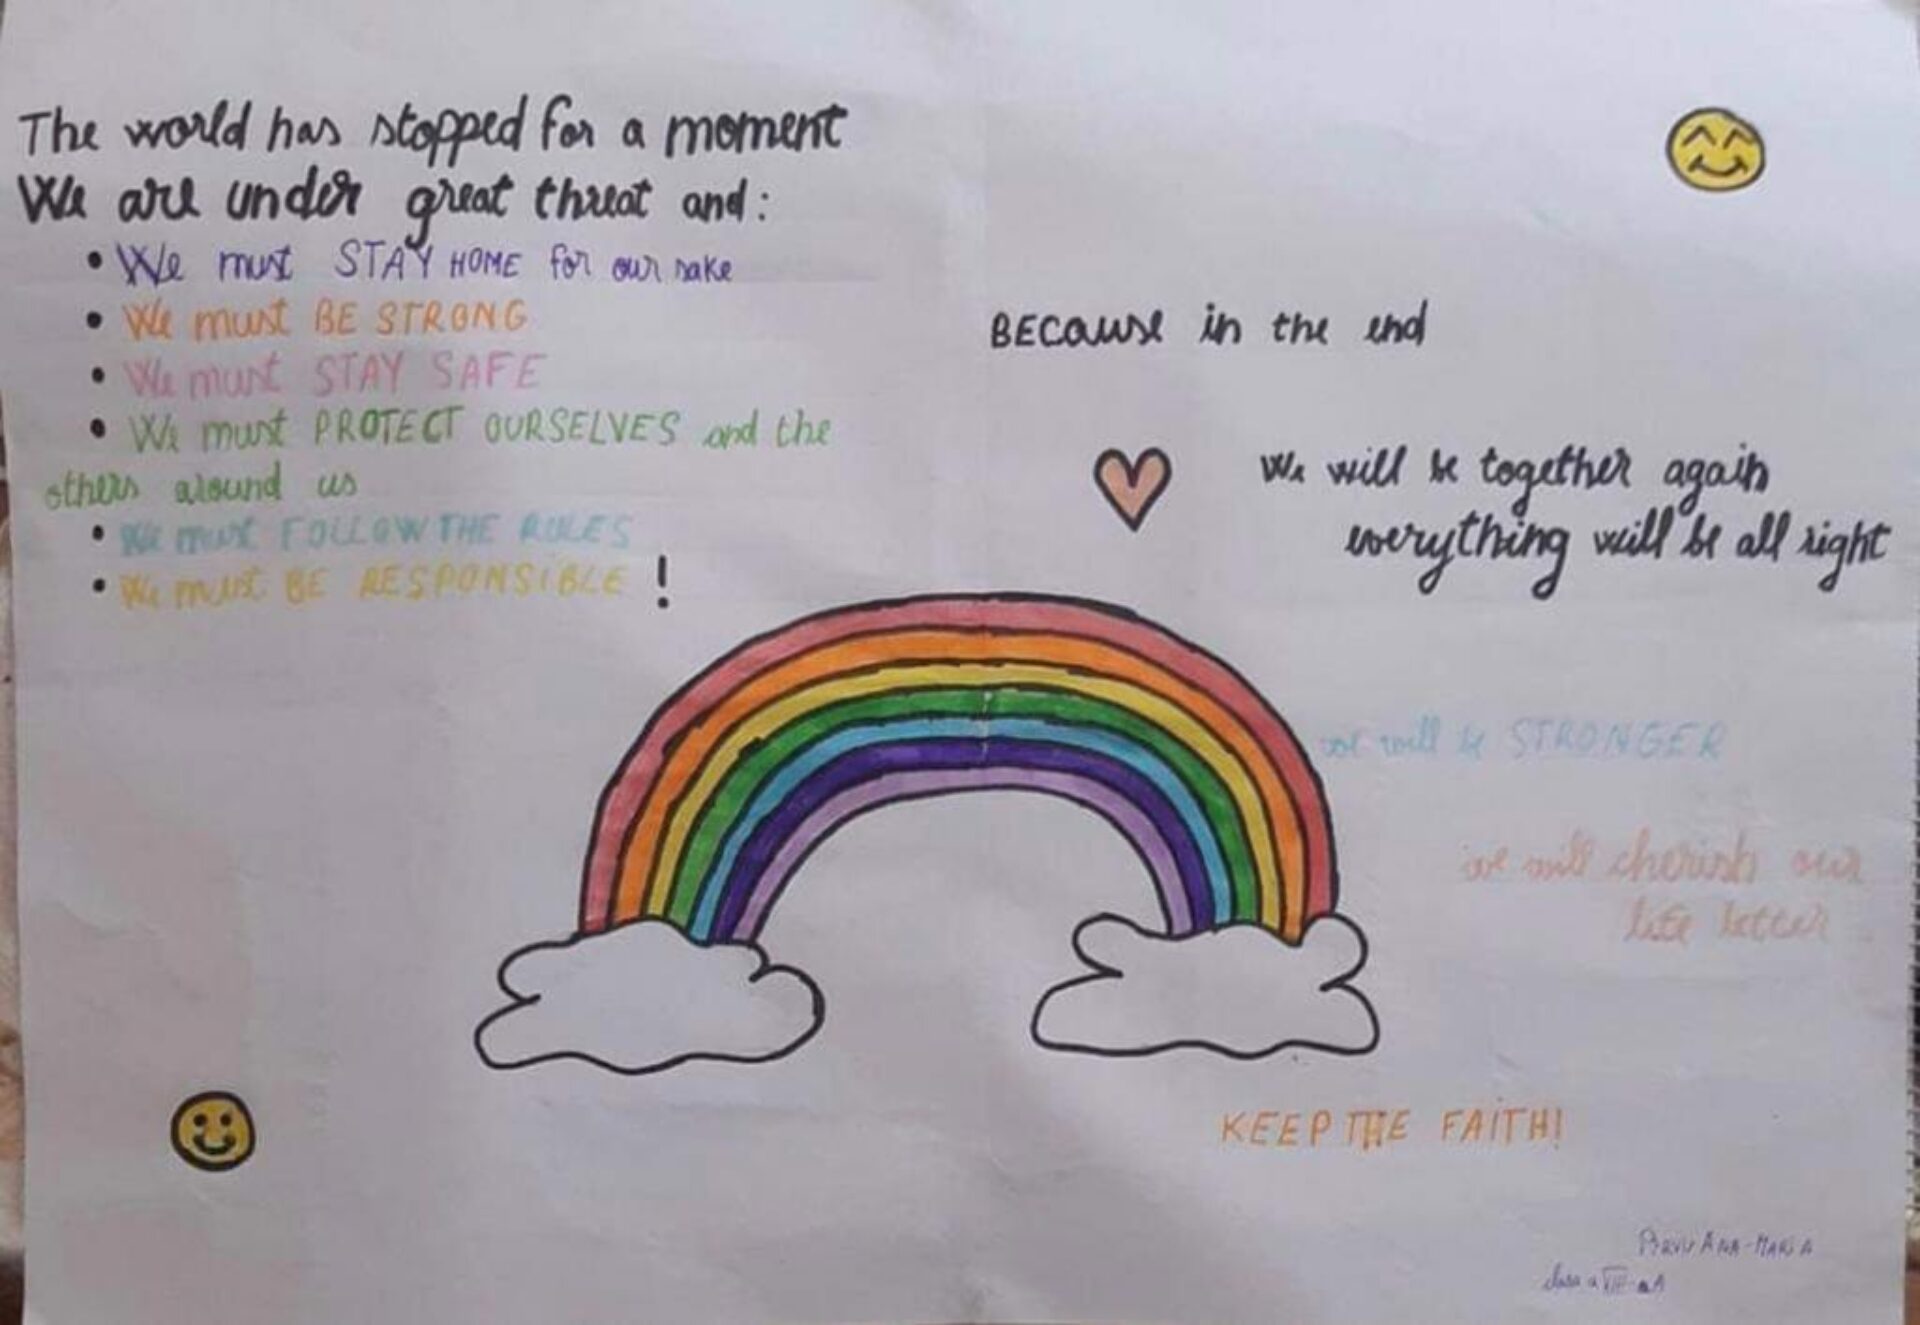 The world has stopped for a moment
We are under great threat and:
• We must STAY HOME for our sake
• We must BE STRONG
• We must STAY SAFE
• We must PROTECT OURSELVES and the
others around us
• We must FOLLOW THE RULES
• We must BE RESPONSIBLE !
BECause in the end
We will be together again
everything will be all right
we will be STRONGER
we will cherish our
life better
KEEP THE FAITH!
Pîrvu Ana-Maria
clasa a VII-a A